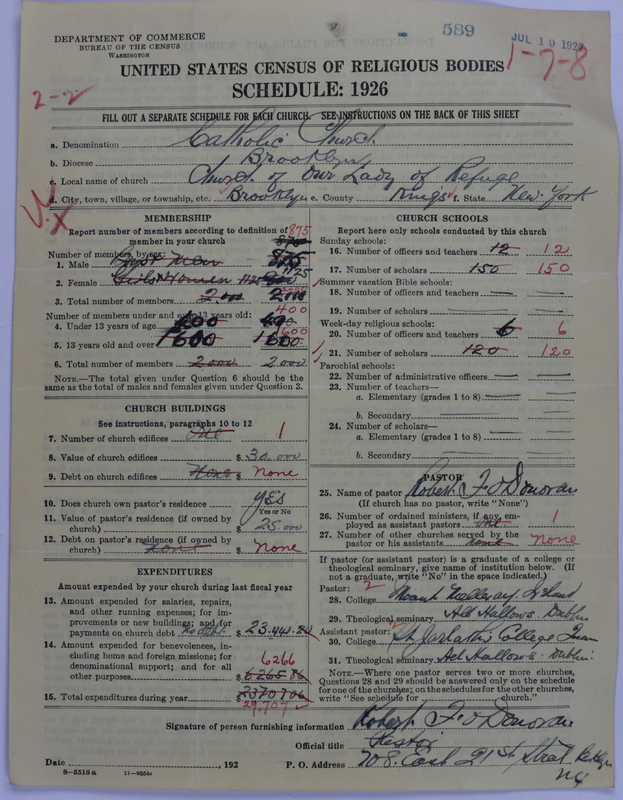 589
JUL 19 192
1-7-8
DEPARTMENT OF COMMERCE
BUREAU OF THE CENSUS
WASHINGTON
UNITED STATES CENSUS OF RELIGIOUS BODIES
SCHEDULE: 1926
2-2
FILL OUT A SEPARATE SCHEDULE FOR EACH CHURCH. SEE INSTRUCTIONS ON THE BACK OF THIS SHEET
a. Denomination Catholic Church
b. Diocese Brooklyn
c. Local name of church Church of Our Lady of Refuge
d. City, town, village, or township, etc. Brooklyn e. County Kings f. State New York
MEMBERSHIP
Report number of members according to definition of 875
member in your church 875
Number of members by sex:
1. Male Boys + Men 875
2. Female Girls + Women 1125 1125
3. Total number of members 2000 2000
Number of members under and over 13 years old: 400
4. Under 13 years of age 400 400
5. 13 years old and over 1600 1600 1600
6. Total number of members 2000 2000
NOTE.—The total given under Question 6 should be the
same as the total of males and females given under Question 3.
CHURCH BUILDINGS
See instructions, paragraphs 10 to 12
7. Number of church edifices One 1
8. Value of church edifices $ 30,000
9. Debt on church edifices None $ None
10. Does church own pastor's residence YES
Yes or No
11. Value of pastor's residence (if owned by
church) $ 25,000
12. Debt on pastor's residence (if owned by
church) None $ None
EXPENDITURES
Amount expended by your church during last fiscal year
13. Amount expended for salaries, repairs,
and other running expenses; for im-
provements or new buildings; and for
payments on church debt No debt. $ 23,441.20
14. Amount expended for benevolences,
including home and foreign missions; for
denominational support; and for all
other purposes 6266
$ 6265.86
15. Total expenditures during year $ 29707.06
29,707
CHURCH SCHOOLS
Report here only schools conducted by this church
Sunday schools:
16. Number of officers and teachers 12 12
17. Number of scholars 150 150
Summer vacation Bible schools:
18. Number of officers and teachers
19. Number of scholars
Week-day religious schools:
20. Number of officers and teachers 6 6
21. Number of scholars 120 120
Parochial schools:
22. Number of administrative officers
23. Number of teachers—
a. Elementary (grades 1 to 8)
b. Secondary
24. Number of scholars—
a. Elementary (grades 1 to 8)
b. Secondary
PASTOR
25. Name of pastor Robert F. O'Donovan
(If church has no pastor, write "None")
26. Number of ordained ministers, if any, em-
ployed as assistant pastors One. 1
27. Number of other churches served by the
pastor or his assistants None None
If pastor (or assistant pastor) is a graduate of a college or
theological seminary, give name of institution below. (If
not a graduate, write "No" in the space indicated.)
Pastor: 2
28. College Mount Melleray, Ireland
29. Theological seminary All Hallows, Dublin
Assistant pastor: 2
30. College St. Jarlath's College Tuam
31. Theological seminary All Hallows. Dublin.
NOTE.—Where one pastor serves two or more churches,
Questions 28 and 29 should be answered only on the schedule
for one of the churches; on the schedules for the other churches,
write "See schedule for church."
Signature of person furnishing information Robert F. O'Donovan
Official title Rector
Date , 192 P. O. Address 708 East 21st Street Bklyn
NY
8—5518a 11—9554